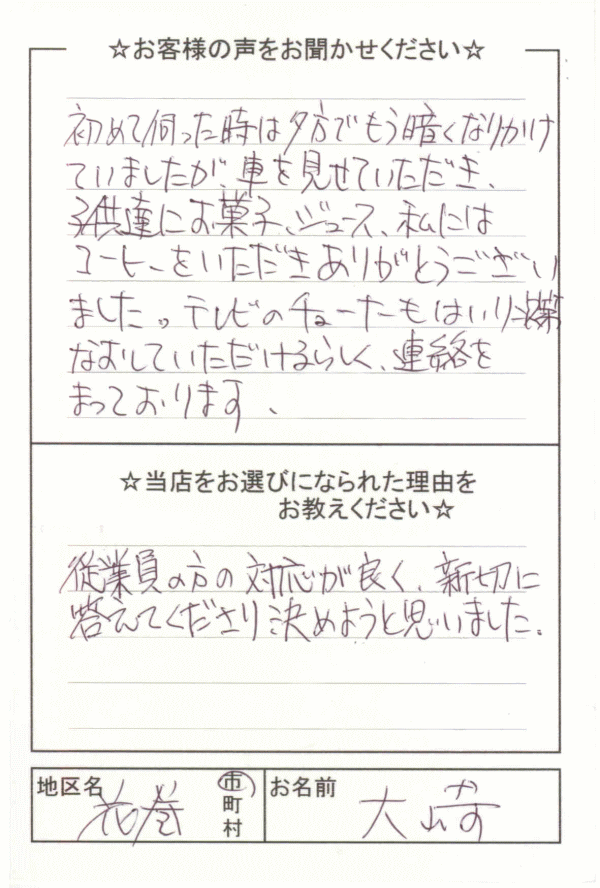 ☆お客様の声をお聞かせください☆
初めて伺った時は夕方でもう暗くなりかけ
ていましたが、車を見せていただき、
子供達にお菓子、ジュース、私には
コーヒーをいただきありがとうござい
ました。テレビのチューナーもはいり
なおしていただけるらしく、連絡を
まっております、
☆当店をお選びになられた理由を
お教えください☆
従業員の方の対応が良く、新切に
答えてくださり決めようと思いました。
地区名 花巻 市
町
村
お名前 大崎